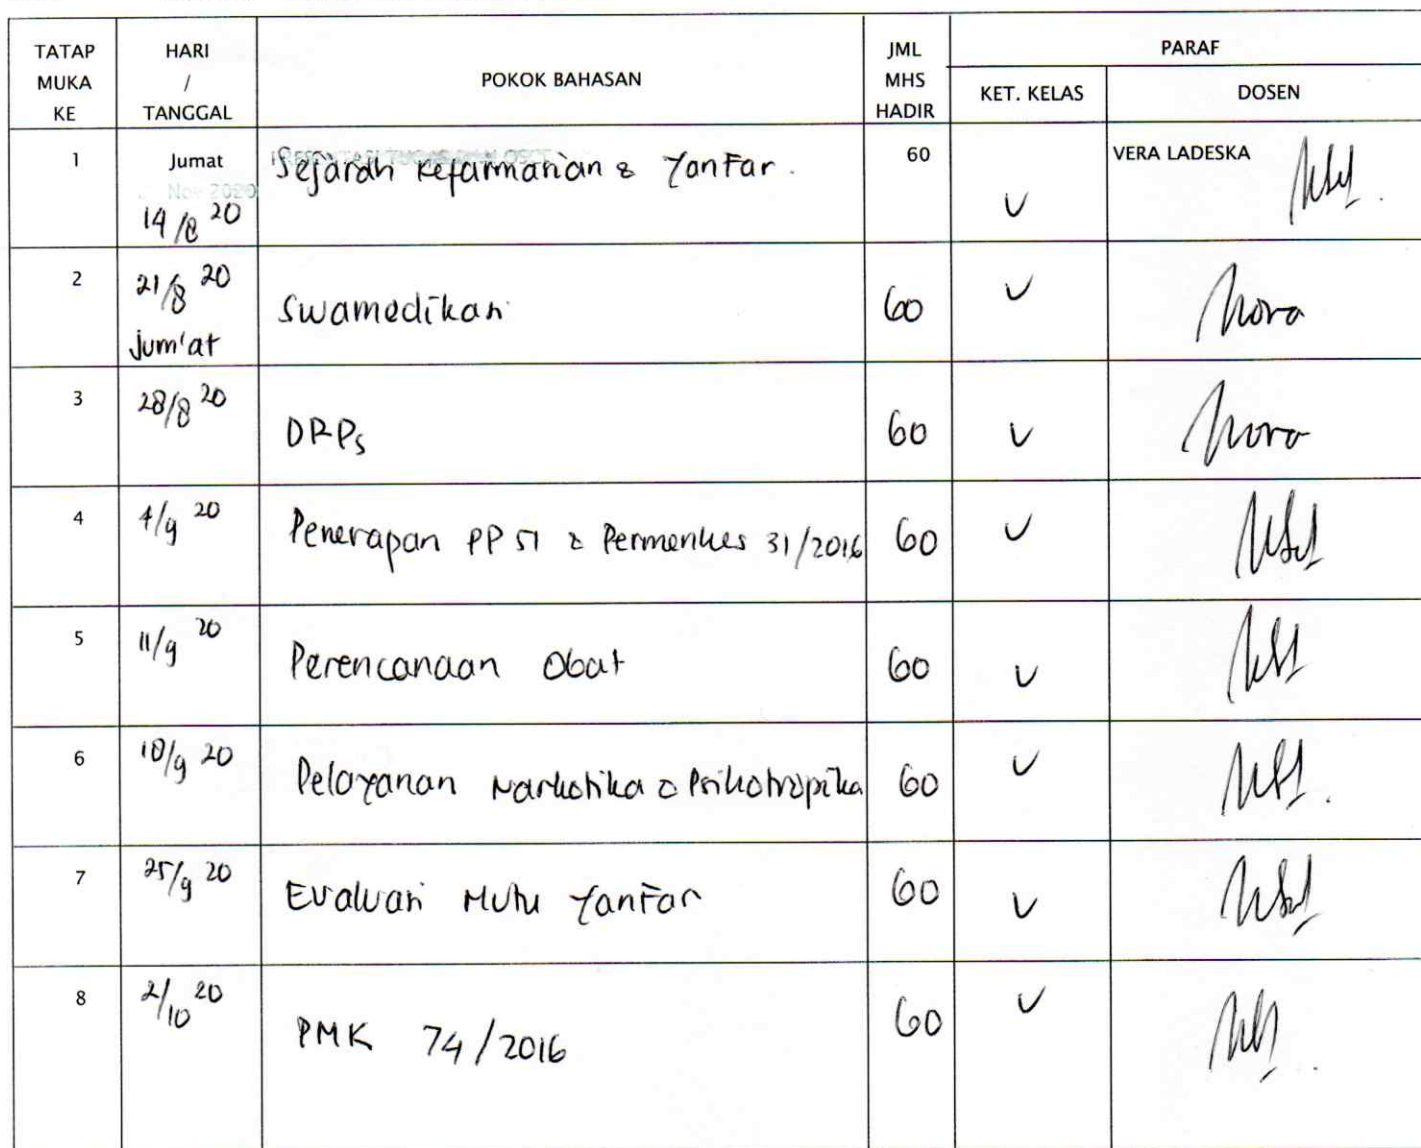 TATAP MUKA KE HARI / TANGGAL POKOK BAHASAN JML MHS HADIR PARAF
KET. KELAS DOSEN
1 Jumat 14/8 20 Sejarah Kefarmasian & YanFar. 60 V VERA LADESKA
Nov 2020
2 21/8 20 Jum'at Swamedikasi 60 V Nora
3 28/8 20 DRPs 60 V Nora
4 4/9 20 Penerapan PP 51 & Permenkes 31/2016 60 V
5 11/9 20 Perencanaan Obat 60 V
6 18/9 20 Pelayanan Narkotika & Psikotropika 60 V
7 25/9 20 Evaluasi Mutu YanFar 60 V
8 2/10 20 PMK 74/2016 60 V